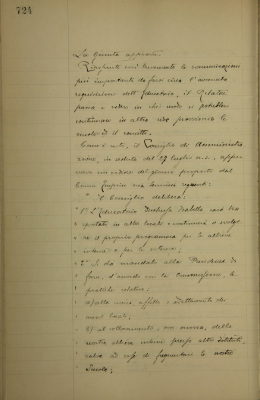 724
La Giunta approva.
Riassunte così brevemente le comunicazioni
più importanti da farsi circa l'avvenuta
requisizione dell'Educatorio, il Relatore
passa a vedere in che modo si potrebbe
continuare in altra sede provvisoria la
scuola ed il convitto.
Come è noto, il Consiglio di Amministra
zione, in seduta del 27 luglio u.s., appro
vava un ordine del giorno proposto dal
nei termini seguenti:
" Il Consiglio delibera;
" 1° L'Educatorio sarà tra
sportato in altro locale e continuerà a svolge
re il proprio programma per le alliene
interne e per le esterne;
" 2° Si dà mandato alla Presidenza di
fare, d'accordo con la Commissione, le
pratiche relative;
a) alla nuova affitto e adattamento dei
nuovi locali;
b) al collocamento, ove occorra, delle
nostre alliene interne presso altri Istituti,
salvo ad esse di frequentare le nostre
Scuole;